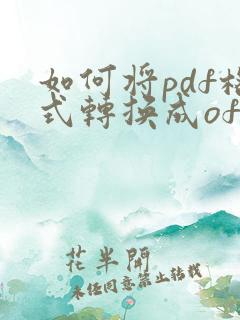 如何将pdf格
式轉換成of
花半開
未经同意禁止转载